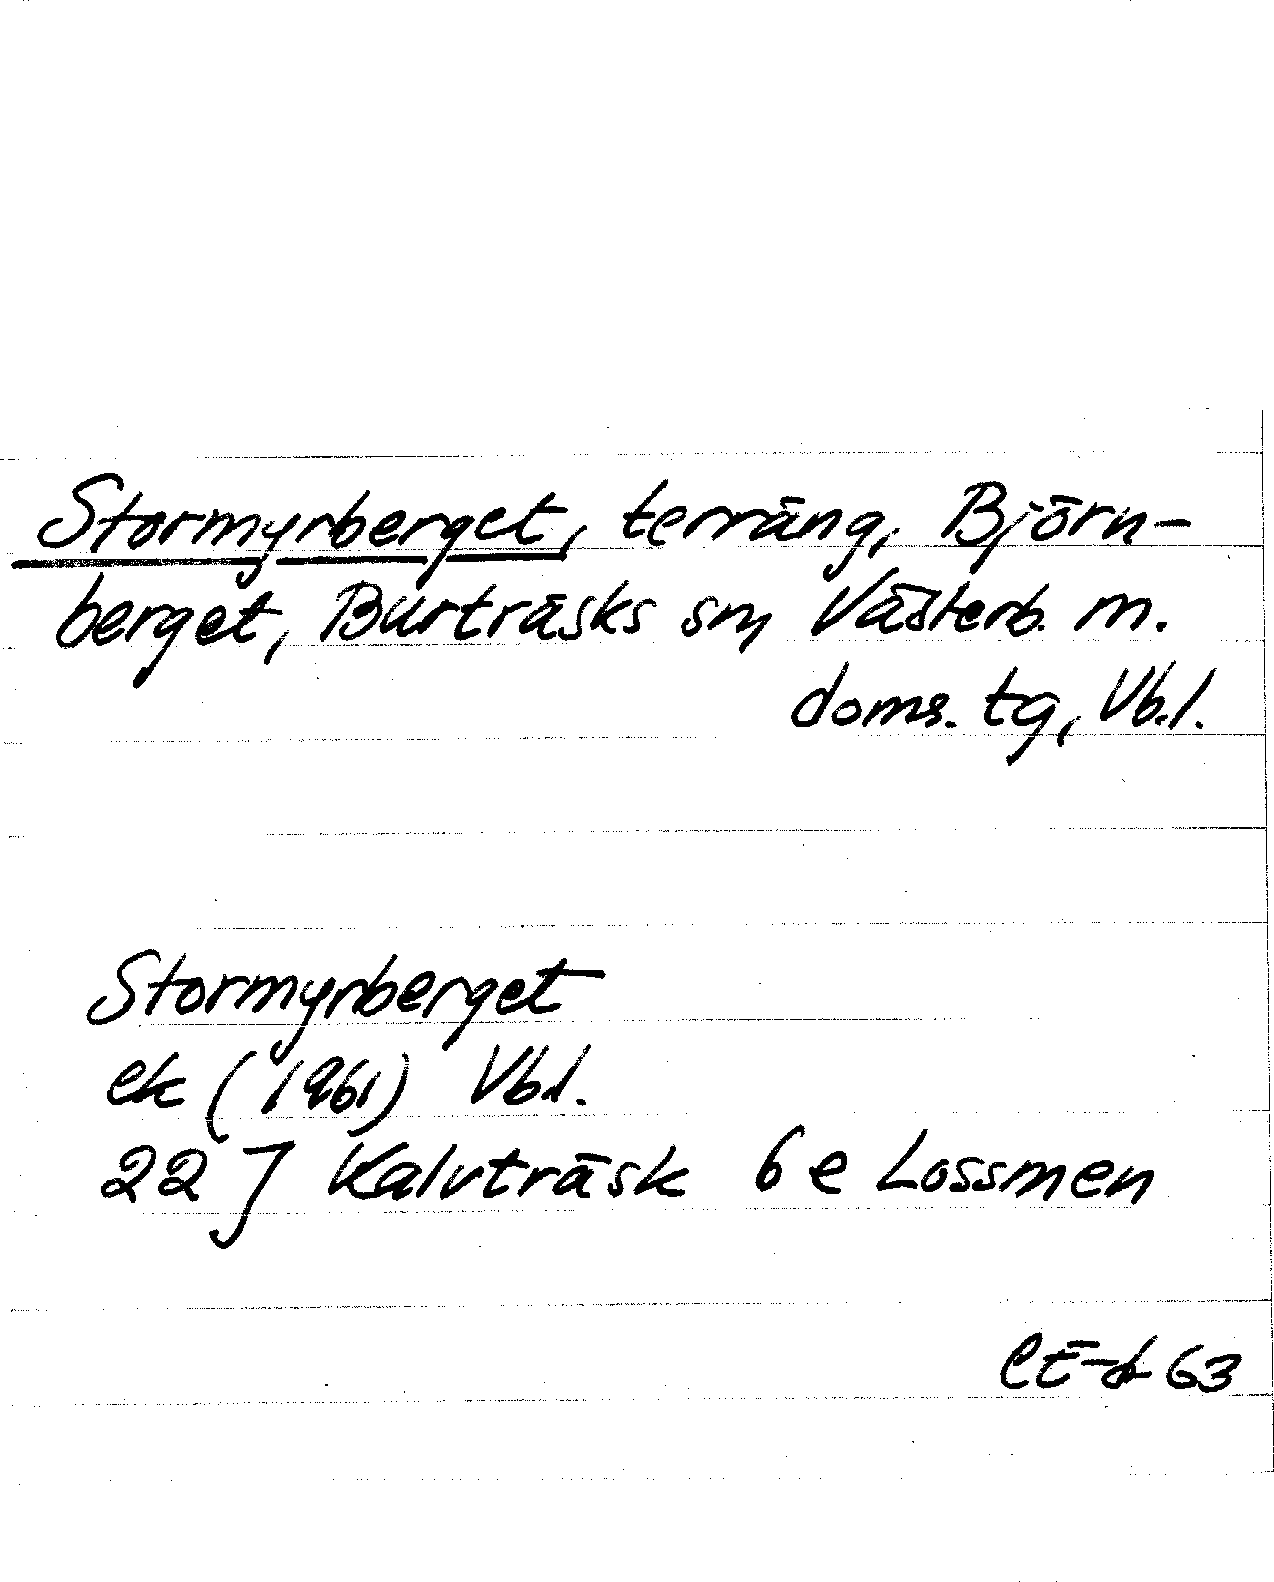 Stormyrberget, terräng, Björn-
berget, Burträsks sn, Västerb. m.
doms. tg, Vb.l.
Stormyrberget
ek (1961) Vb.l.
22 J Kalvträsk 6 e Lossmen
63